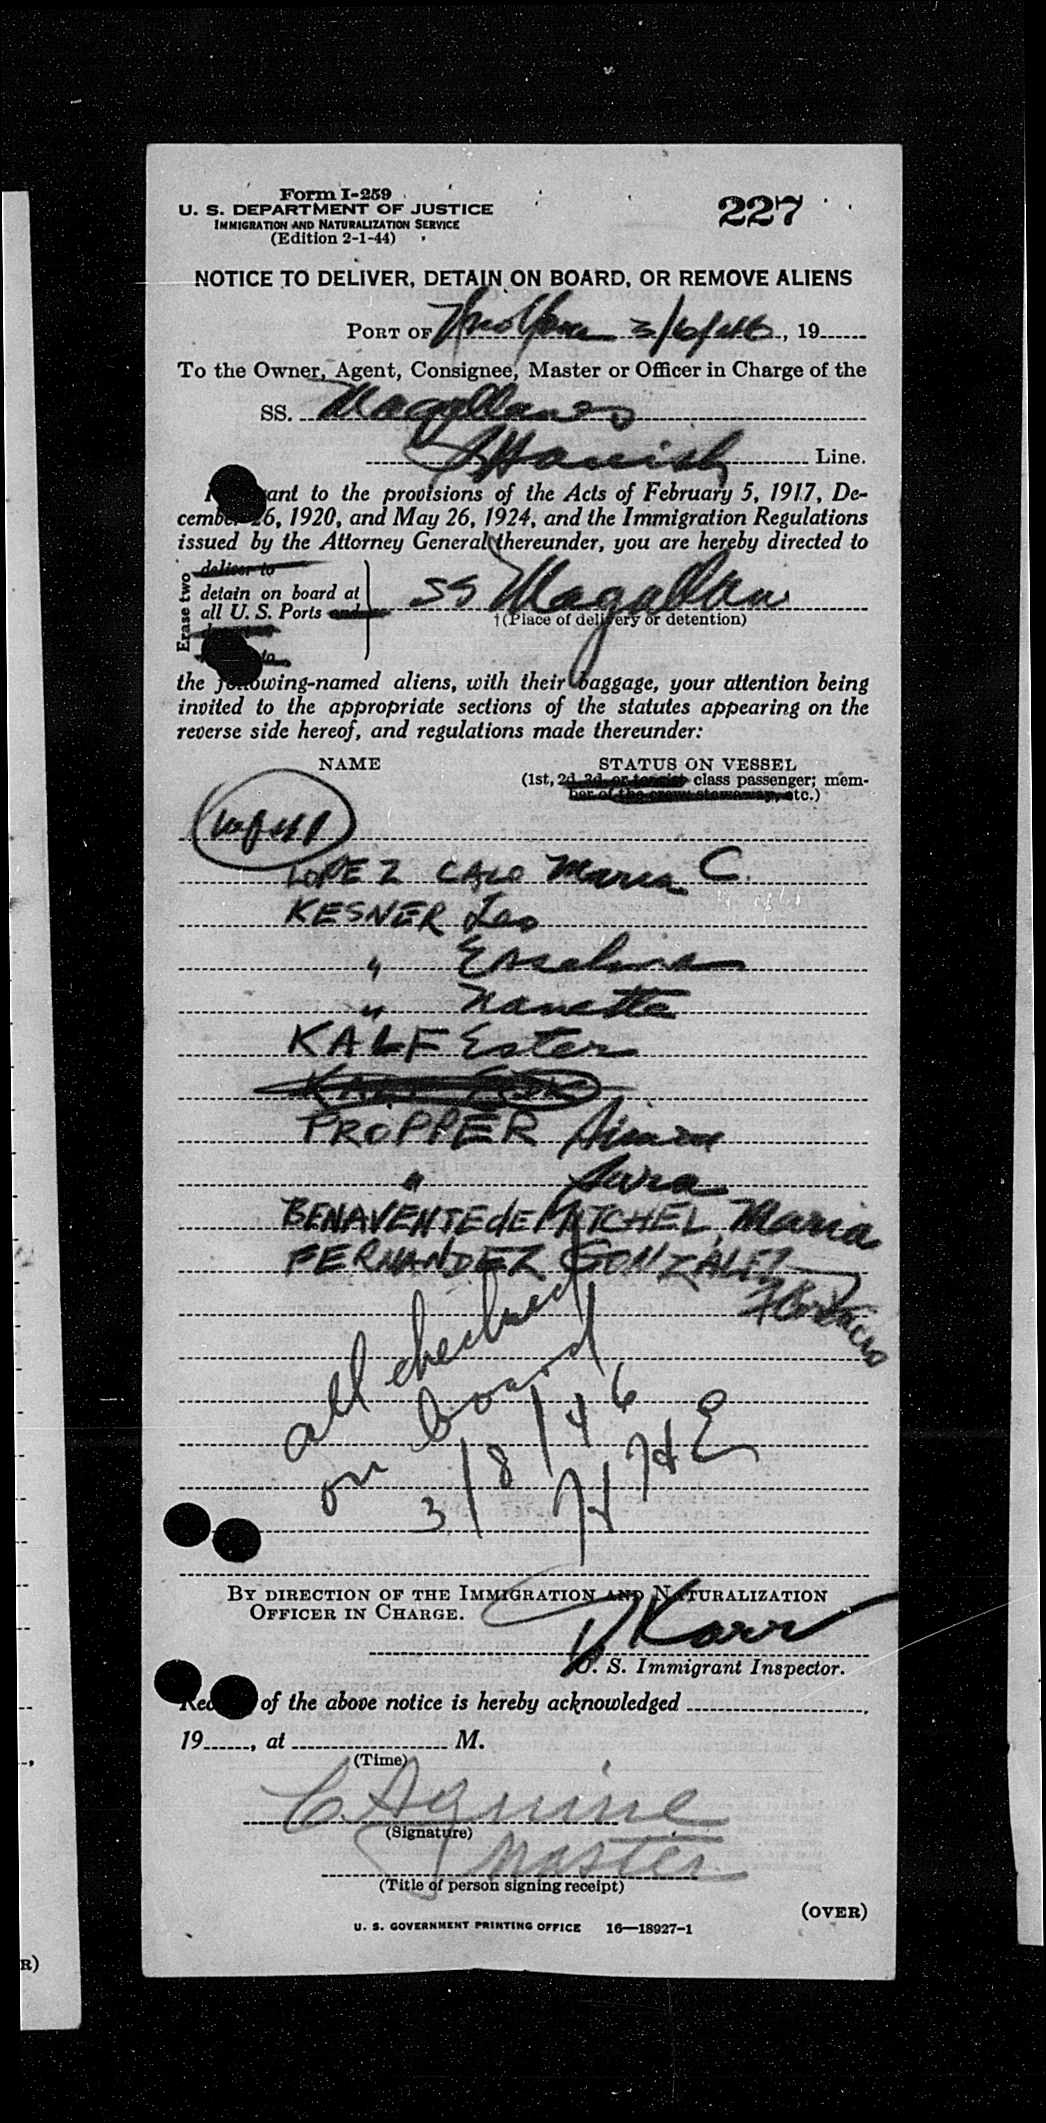 Form I-259
U. S. DEPARTMENT OF JUSTICE
IMMIGRATION AND NATURALIZATION SERVICE
(Edition 2-1-44)
227
NOTICE TO DELIVER, DETAIN ON BOARD, OR REMOVE ALIENS
PORT OF 3/6/46, 19
To the Owner, Agent, Consignee, Master or Officer in Charge of the
SS. Magallanes
Spanish Line.
ant to the provisions of the Acts of February 5, 1917, De-
cember 26, 1920, and May 26, 1924, and the Immigration Regulations
issued by the Attorney General thereunder, you are hereby directed to
Erase two
deliver to
detain on board at
all U. S. Ports and
to
SS Magallan
†(Place of delivery or detention)
the following-named aliens, with their baggage, your attention being
invited to the appropriate sections of the statutes appearing on the
reverse side hereof, and regulations made thereunder:
NAME
STATUS ON VESSEL
(1st, 2d, 3d, or tourist class passenger; mem-
ber of the crew, stowaway, etc.)
LOPEZ CALO Maria C.
KESNER Leo
" 
" Nanette
KALF Ester
PROPPER Simon
" Sara
BENAVENTE de MITCHEL, Maria
FERNANDEZ GONZALEZ
all checked
on board
3/8/46
HHE
BY DIRECTION OF THE IMMIGRATION AND NATURALIZATION
OFFICER IN CHARGE.
Karr
U. S. Immigrant Inspector.
Receipt of the above notice is hereby acknowledged
19, at M.
(Time)
C. Aguirre
(Signature)
Master
(Title of person signing receipt)
(OVER)
U. S. GOVERNMENT PRINTING OFFICE 16—18927-1
R)